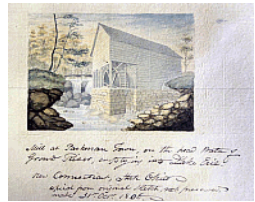 Mill at Parkman Town, on the head Waters of
Grand River, emptying into Lake Erie
New Connecticut, State Ohio
copied from original Sketch, not preserved
made 31st Oct. 1806